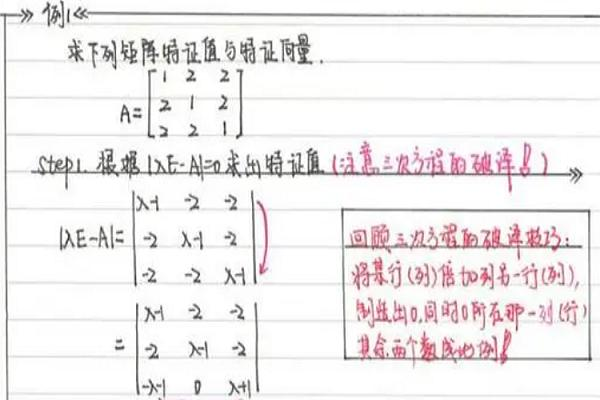 例1
求下列矩阵特征值与特征向量.
A= [1 2 2
2 1 2
2 2 1]
step1. 根据 |λE-A|=0 求出特征值 (注意三次方程的破译!)
|λE-A|= |λ-1 -2 -2
-2 λ-1 -2
-2 -2 λ-1|
回顾三次方程的破译技巧:
将某行(列)倍加到另一行(列),
制造出0,同时0所在那一列(行)
其余两个数成比例!
= |λ-1 -2 -2
-2 λ-1 -2
-λ-1 0 λ+1|